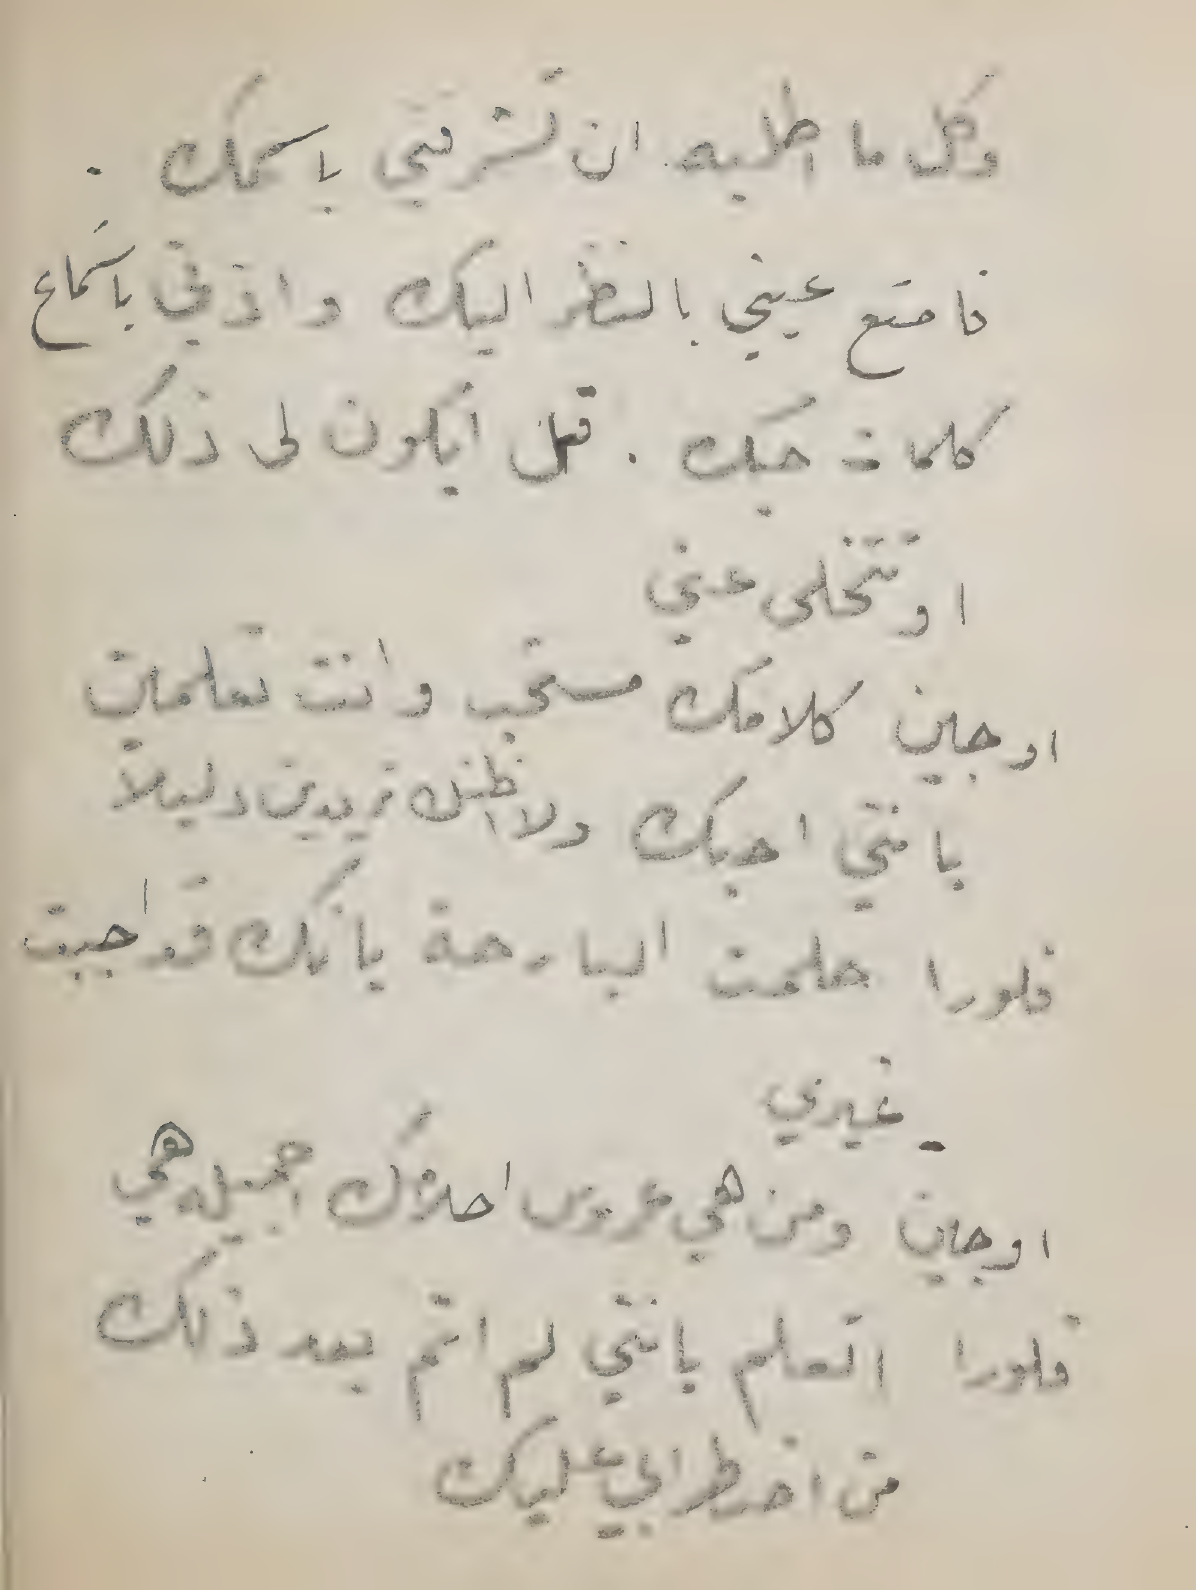 وكل ما اطلبه ان تشرفني باسمك .
فامتع عيني بالنظر اليك واذني باسماع
كلمات حبك . قل ايكون لى ذلك
او تتخلى عني
اوجين كلامك مستحب وانت تعلمين
بانني احبك ولا اظنك تريدين دليلاً
فلورا حلمت البارحة بانك قد احببت
غيري
اوجين ومن هي عروس احلامك اجميله هي
فلورا اتعلم بانني لم انم بعد ذلك
من اضطرابي عليك